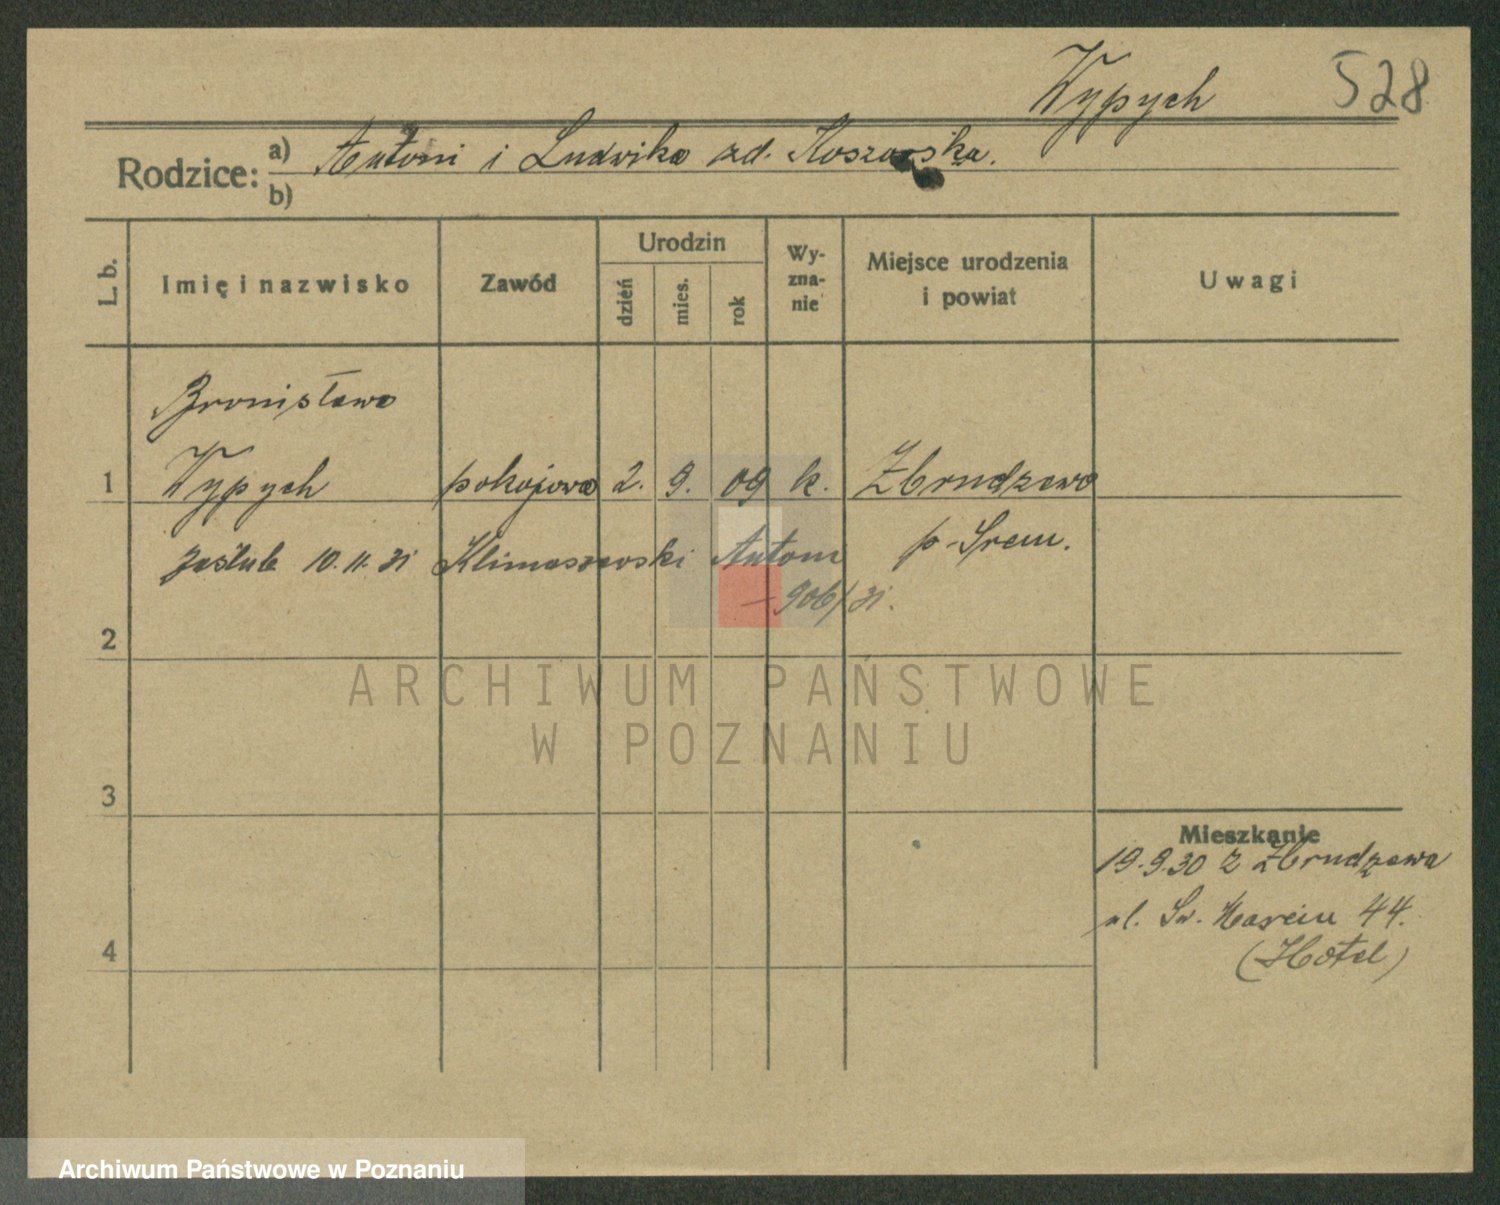 Wypych 528
Rodzice: a) Antoni i Ludwika zd.
b)
L. b. Imię i nazwisko Zawód Urodzin dzień mies. rok Wy-zna-nie Miejsce urodzenia i powiat Uwagi
Bronisława
1 Wypych pokojowa 2. 9. 09 k. Zbrudzewo
zaślub 10.11.31 Klimaszewski Antoni p-Śrem.
– 906/31.
2
ARCHIWUM PAŃSTWOWE
W POZNANIU
3
Mieszkanie
19.9.30 z Zbrudzewa
ul. Św. Marcin 44.
4 (Hotel)
Archiwum Państwowe w Poznaniu